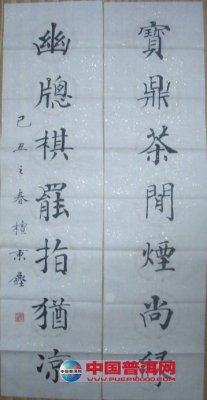 寶鼎茶閒煙尚綠
幽牕棋罷指猶凉
己丑之春
中国普洱网
WWW.PUER10000.COM